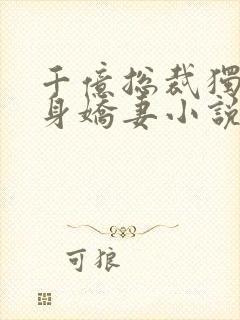 千億總裁獨
身嬌妻小說
可狼